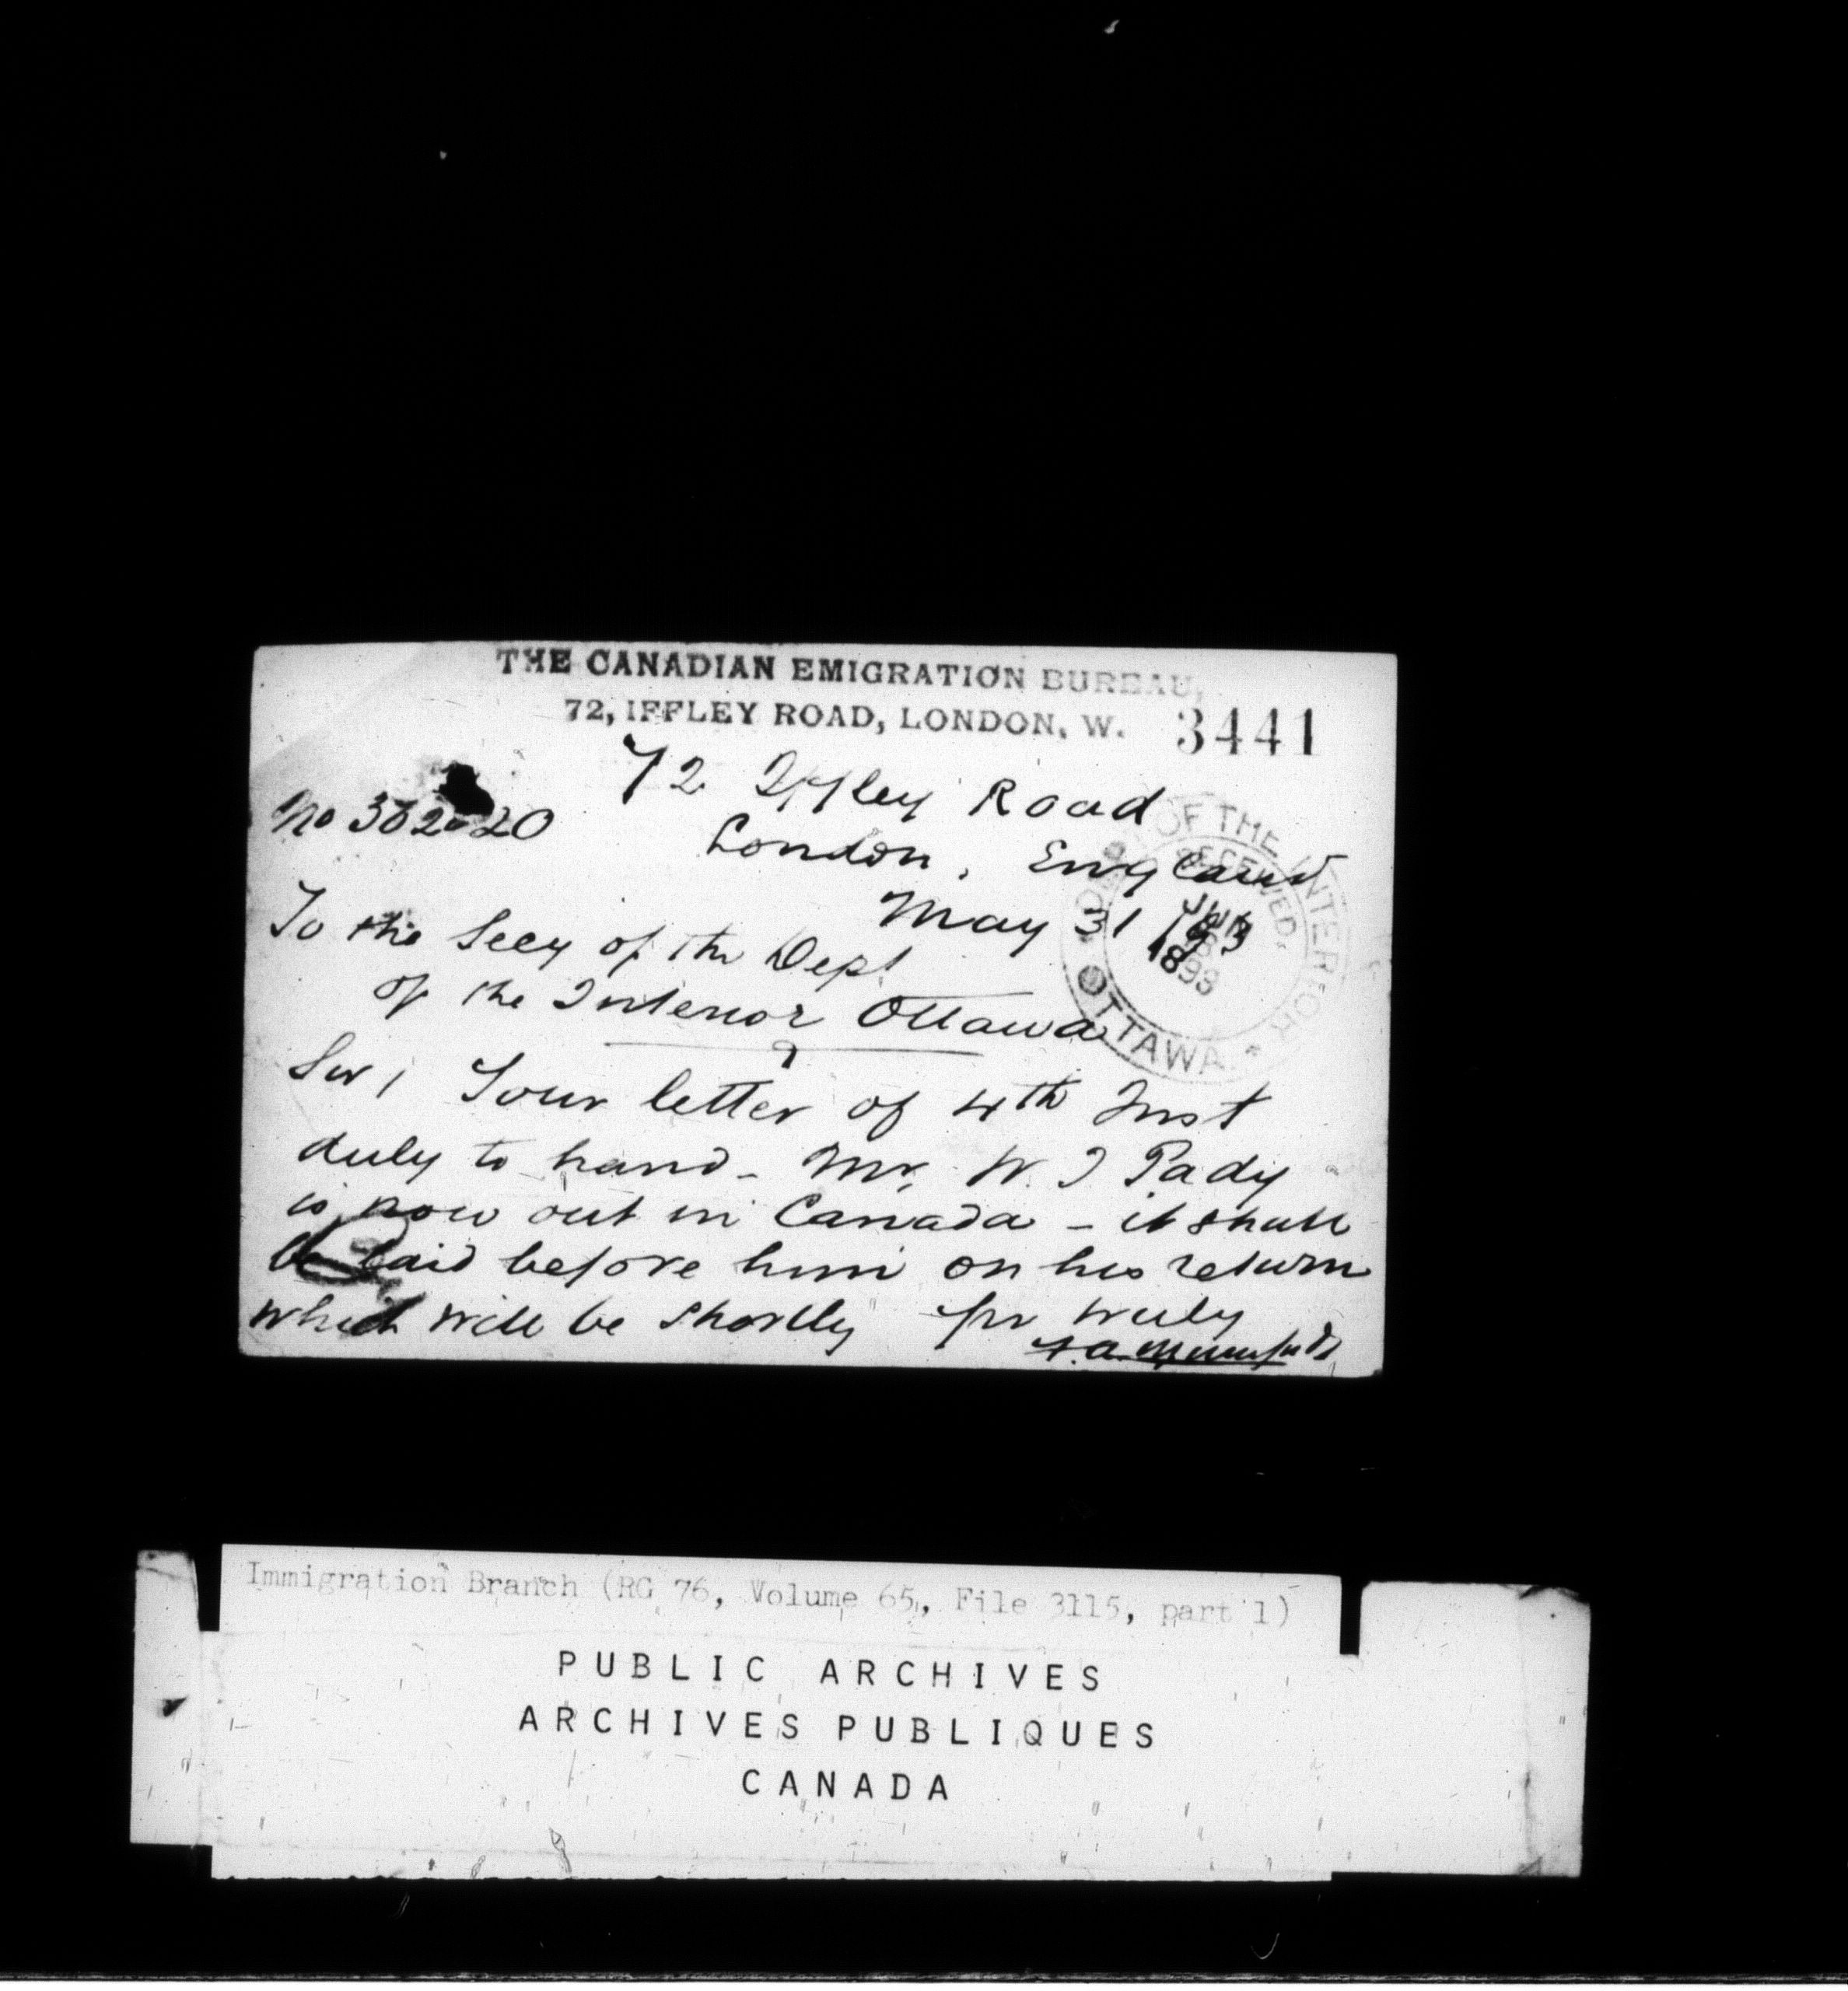 THE CANADIAN EMIGRATION BUREAU,
72, IFFLEY ROAD, LONDON, W.
3441
72 Iffley Road
No 362 20
London, England
May 31 1893
To the Secy of the Dept
of the Interior Ottawa
DEPT OF THE INTERIOR
RECEIVED
JUN
1893
OTTAWA
Sir, Your letter of 4th Inst
duly to hand - Mr. W. J Pady
is now out in Canada - it shall
be laid before him on his return
which will be shortly yrs truly
Immigration Branch (RG 76, Volume 65, File 3115, part 1)
PUBLIC ARCHIVES
ARCHIVES PUBLIQUES
CANADA